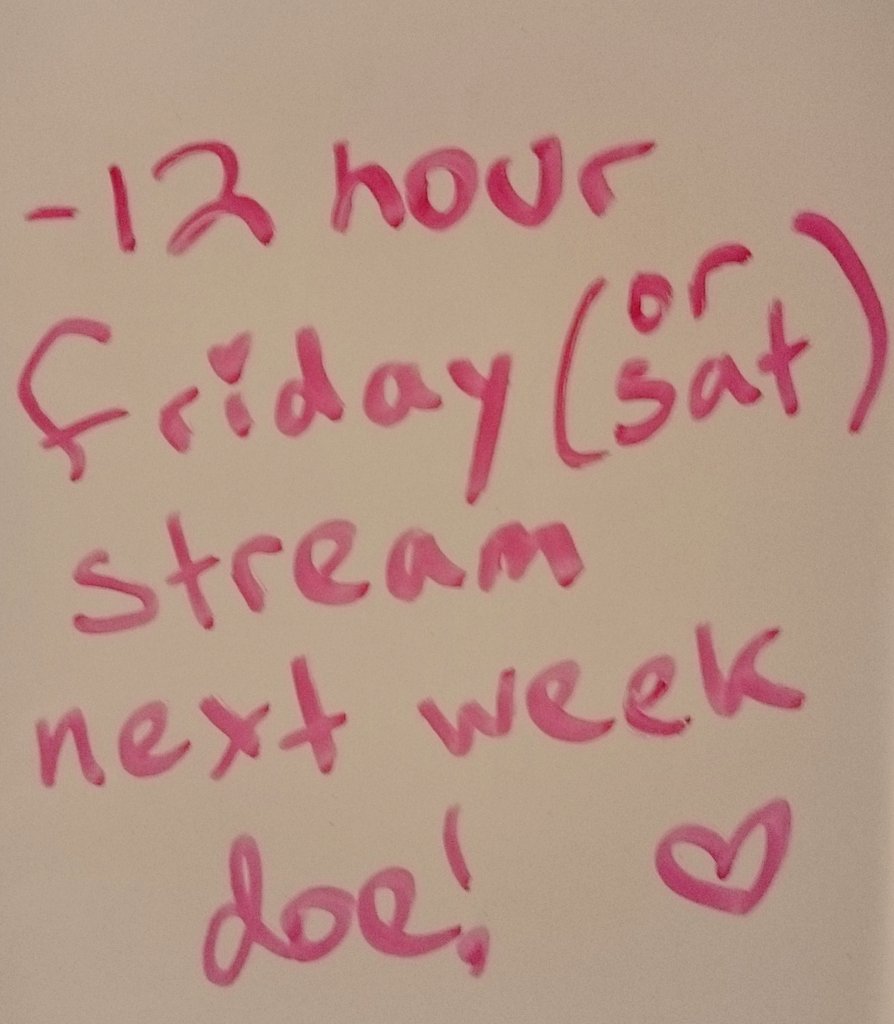 -12 hour
friday (or sat)
stream
next week
doe! ♡